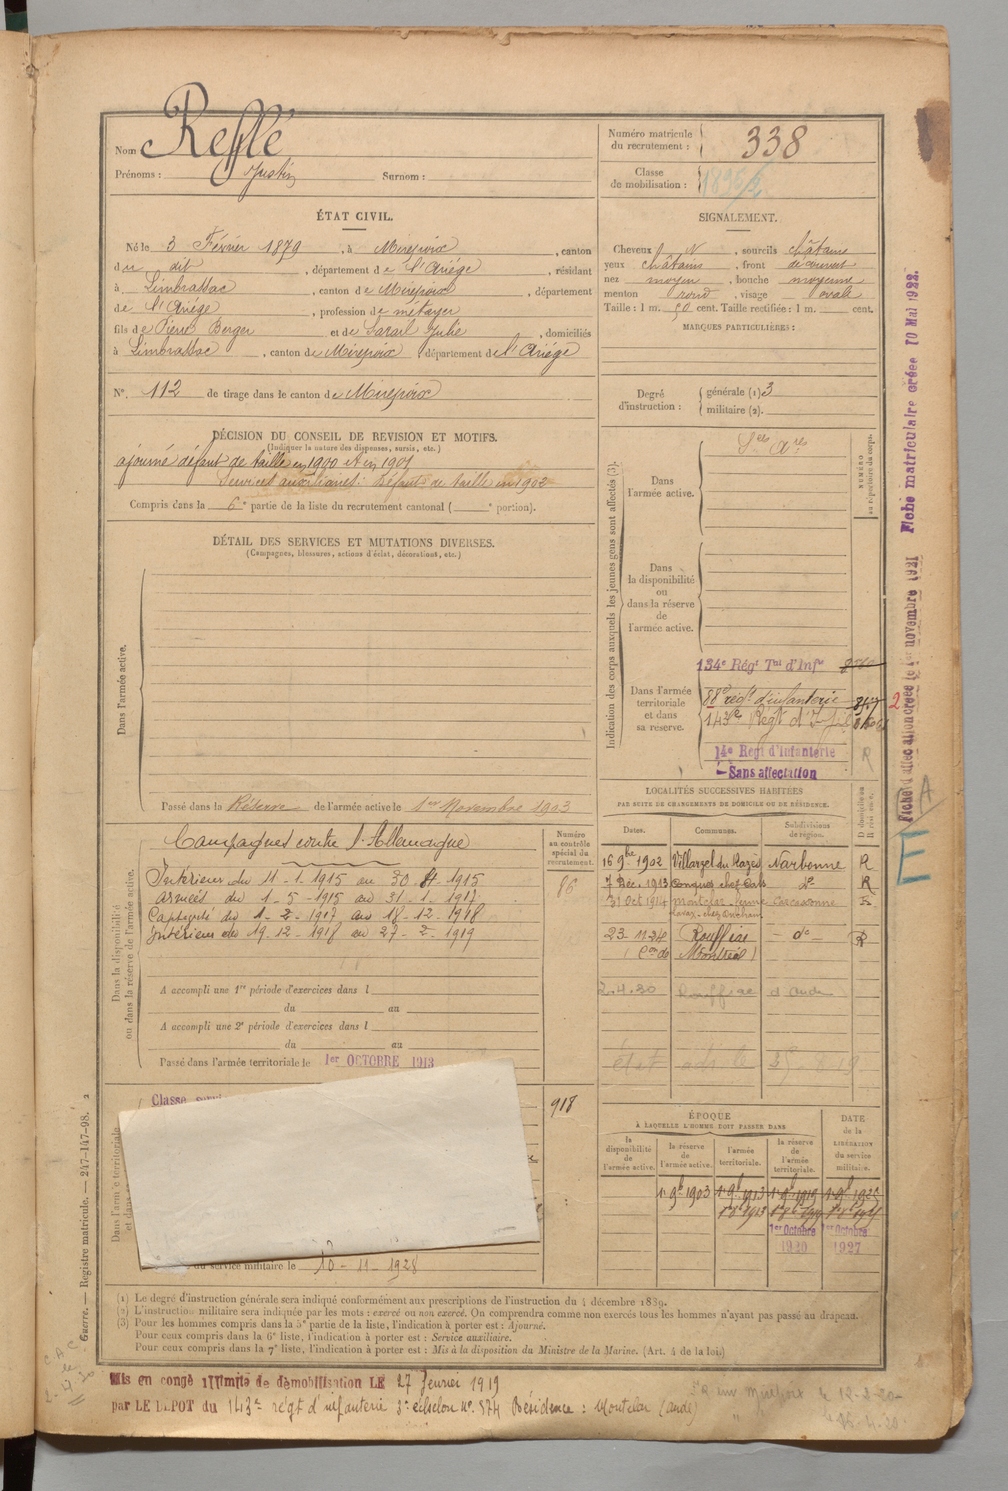 Nom Refflé
Prénoms : Justin Surnom :
Numéro matricule du recrutement : 338
Classe de mobilisation :
ÉTAT CIVIL.
Né le 3 Février 1879, à Mirepoix, canton
du dit, département de l'Ariège, résidant
à Limbrassac, canton de Mirepoix, département
de l'Ariège, profession de métayer
fils de Pierre Berger et de Sarail Julie, domiciliés
à Limbrassac, canton de Mirepoix département de l'Ariège
N°. 112 de tirage dans le canton de Mirepoix
DÉCISION DU CONSEIL DE REVISION ET MOTIFS.
(Indiquer la nature des dispenses, sursis, etc.)
ajourné défaut de taille en 1900 et en 1901
Services auxiliaires : Défaut de taille en 1902
Compris dans la 6e partie de la liste du recrutement cantonal ( e portion).
SIGNALEMENT.
Cheveux N, sourcils châtains
yeux châtains, front découvert
nez moyen, bouche moyenne
menton rond, visage ovale
Taille : 1 m. 50 cent. Taille rectifiée : 1 m. cent.
MARQUES PARTICULIÈRES :
Degré d'instruction : générale (1) 3
militaire (2).
DÉTAIL DES SERVICES ET MUTATIONS DIVERSES.
(Campagnes, blessures, actions d'éclat, décorations, etc.)
Dans l'armée active.
Passé dans la Réserve de l'armée active le 1er Novembre 1903
Indication des corps auxquels les jeunes gens sont affectés (3).
NUMÉRO au répertoire du corps.
Dans l'armée active.
Dans la disponibilité ou dans la réserve de l'armée active.
Dans l'armée territoriale et dans sa réserve.
134e Régt Tial d'Infie
88e régt d'infanterie
143e Régt d'Infie
14e Regt d'Infanterie
— Sans affectation
R
Dans la disponibilité ou dans la réserve de l'armée active.
Campagnes contre l'Allemagne
Intérieur du 11-1-1915 au 30-4-1915
armées du 1-5-1915 au 31-1-1917
Captivité du 1-2-1917 au 18-12-1918
Intérieur du 19-12-1918 au 27-2-1919
Numéro au contrôle spécial du recrutement.
86
A accompli une 1re période d'exercices dans l
du au
A accompli une 2e période d'exercices dans l
du au
Passé dans l'armée territoriale le 1er OCTOBRE 1913
LOCALITÉS SUCCESSIVES HABITÉES
PAR SUITE DE CHANGEMENTS DE DOMICILE OU DE RÉSIDENCE.
Dates. Communes. Subdivisions de région. D domicile ou R résidence.
16 9bre 1902 Villarzel du Razès Narbonne R
7 Dec. 1913 Conques do R
31 Oct 1914 Carcassonne R
23-11-24 Rouffiac — do — R
(Con de Montréal)
2.4.30 Rouffiac d'aude
Classe
918
du service militaire le 10-11-1928
ÉPOQUE
À LAQUELLE L'HOMME DOIT PASSER DANS
la disponibilité de l'armée active. la réserve de l'armée active. l'armée territoriale. la réserve de l'armée territoriale. DATE de la LIBÉRATION du service militaire.
1er 9bre 1903
1er Octobre 1920 1er Octobre 1927
(1) Le degré d'instruction générale sera indiqué conformément aux prescriptions de l'instruction du 4 décembre 1889.
(2) L'instruction militaire sera indiquée par les mots : exercé ou non exercé. On comprendra comme non exercés tous les hommes n'ayant pas passé au drapeau.
(3) Pour les hommes compris dans la 5e partie de la liste, l'indication à porter est : Ajourné.
Pour ceux compris dans la 6e liste, l'indication à porter est : Service auxiliaire.
Pour ceux compris dans la 7e liste, l'indication à porter est : Mis à la disposition du Ministre de la Marine. (Art. 4 de la loi)
Mis en congé illimité de démobilisation LE 27 fevrier 1919
par LE DEPOT du 143e régt d'infanterie 3e échelon No. 574 Résidence : Montclar (aude)
Guerre. — Registre matricule. — 247-147-98. 2
Fiche matriculaire créée 10 Mai 1922.
Fiche d'affectation créée le 1er novembre 1921